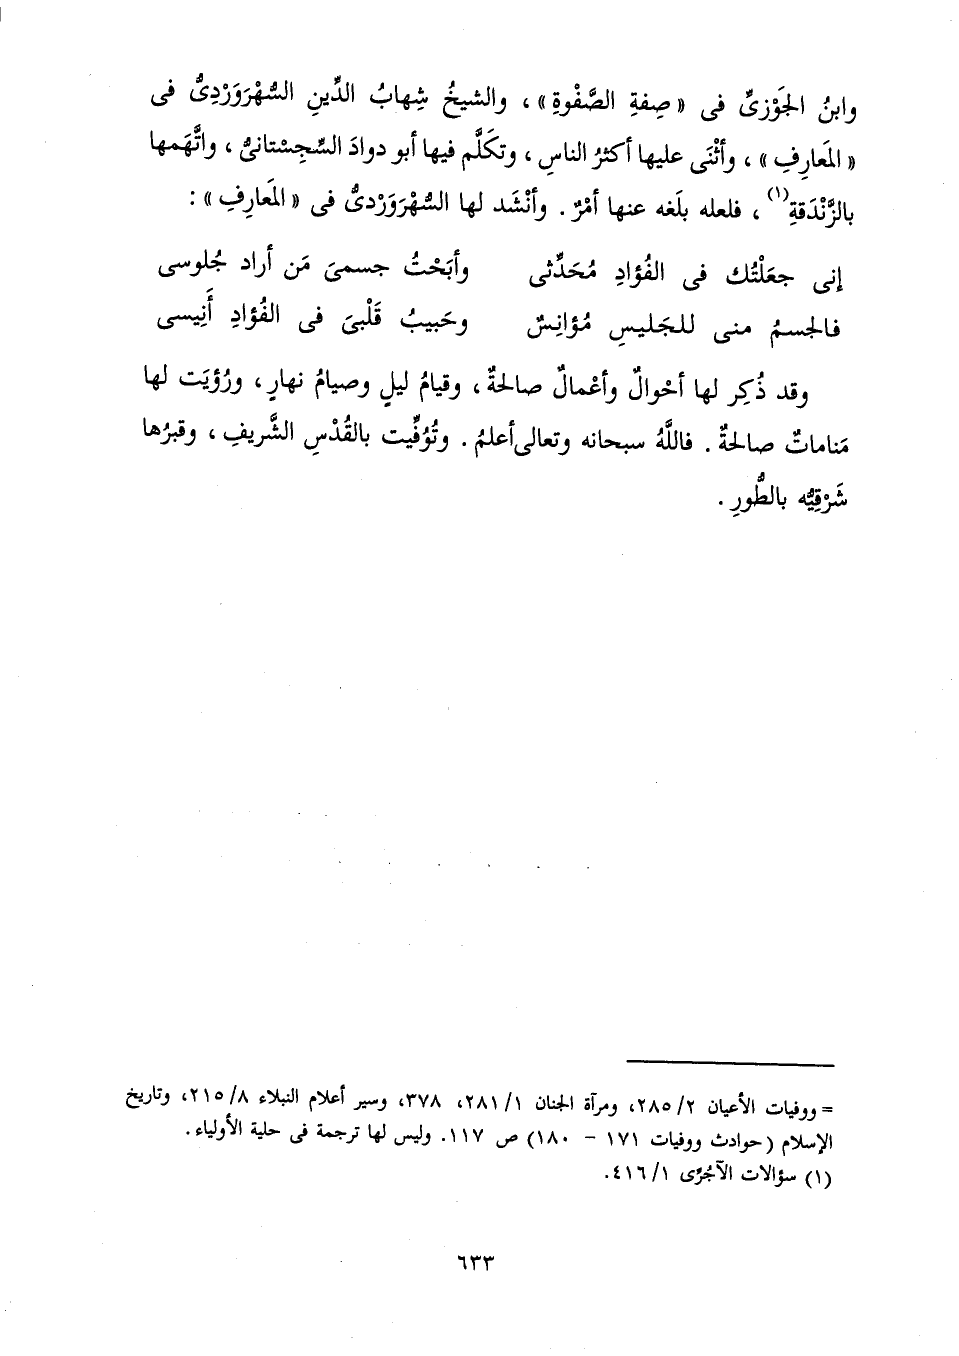 وابنُ الجَوْزىِّ فى « صِفةِ الصَّفْوةِ » ، والشيخُ شِهابُ الدِّينِ السُّهْرَوَرْدِىُّ فى
« المَعارِفِ » ، وأثْنَى عليها أكثرُ الناسِ ، وتكَلَّم فيها أبو دوادَ السِّجِسْتانىُّ ، واتَّهَمها
بالزَّنْدَقةِ(١) ، فلعله بلَغه عنها أمْرٌ . وأنْشَد لها السُّهْرَوَرْدىُّ فى « المَعارِفِ » :
إنى جعَلْتُك فى الفُؤادِ مُحَدِّثى وأبَحْتُ جسمىَ مَن أراد جُلوسى
فالجسمُ منى للجَليسِ مُؤانِسٌ وحَبيبُ قَلْبىَ فى الفُؤادِ أَنِيسى
وقد ذُكِر لها أحْوالٌ وأعْمالٌ صالحةٌ ، وقيامُ ليلٍ وصيامُ نهارٍ ، ورُؤيَت لها
مَناماتٌ صالحةٌ . فاللَّهُ سبحانه وتعالى أعلمُ . وتُوُفِّيت بالقُدْسِ الشَّريفِ ، وقبرُها
شَرْقِيَّه بالطُّورِ .
= ووفيات الأعيان ٢/ ٢٨٥، ومرآة الجنان ١/ ٢٨١، ٣٧٨، وسير أعلام النبلاء ٨/ ٢١٥، وتاريخ
الإسلام (حوادث ووفيات ١٧١ - ١٨٠) ص ١١٧. وليس لها ترجمة فى حلية الأولياء.
(١) سؤالات الآجُرِّى ١/ ٤١٦.
٦٣٣